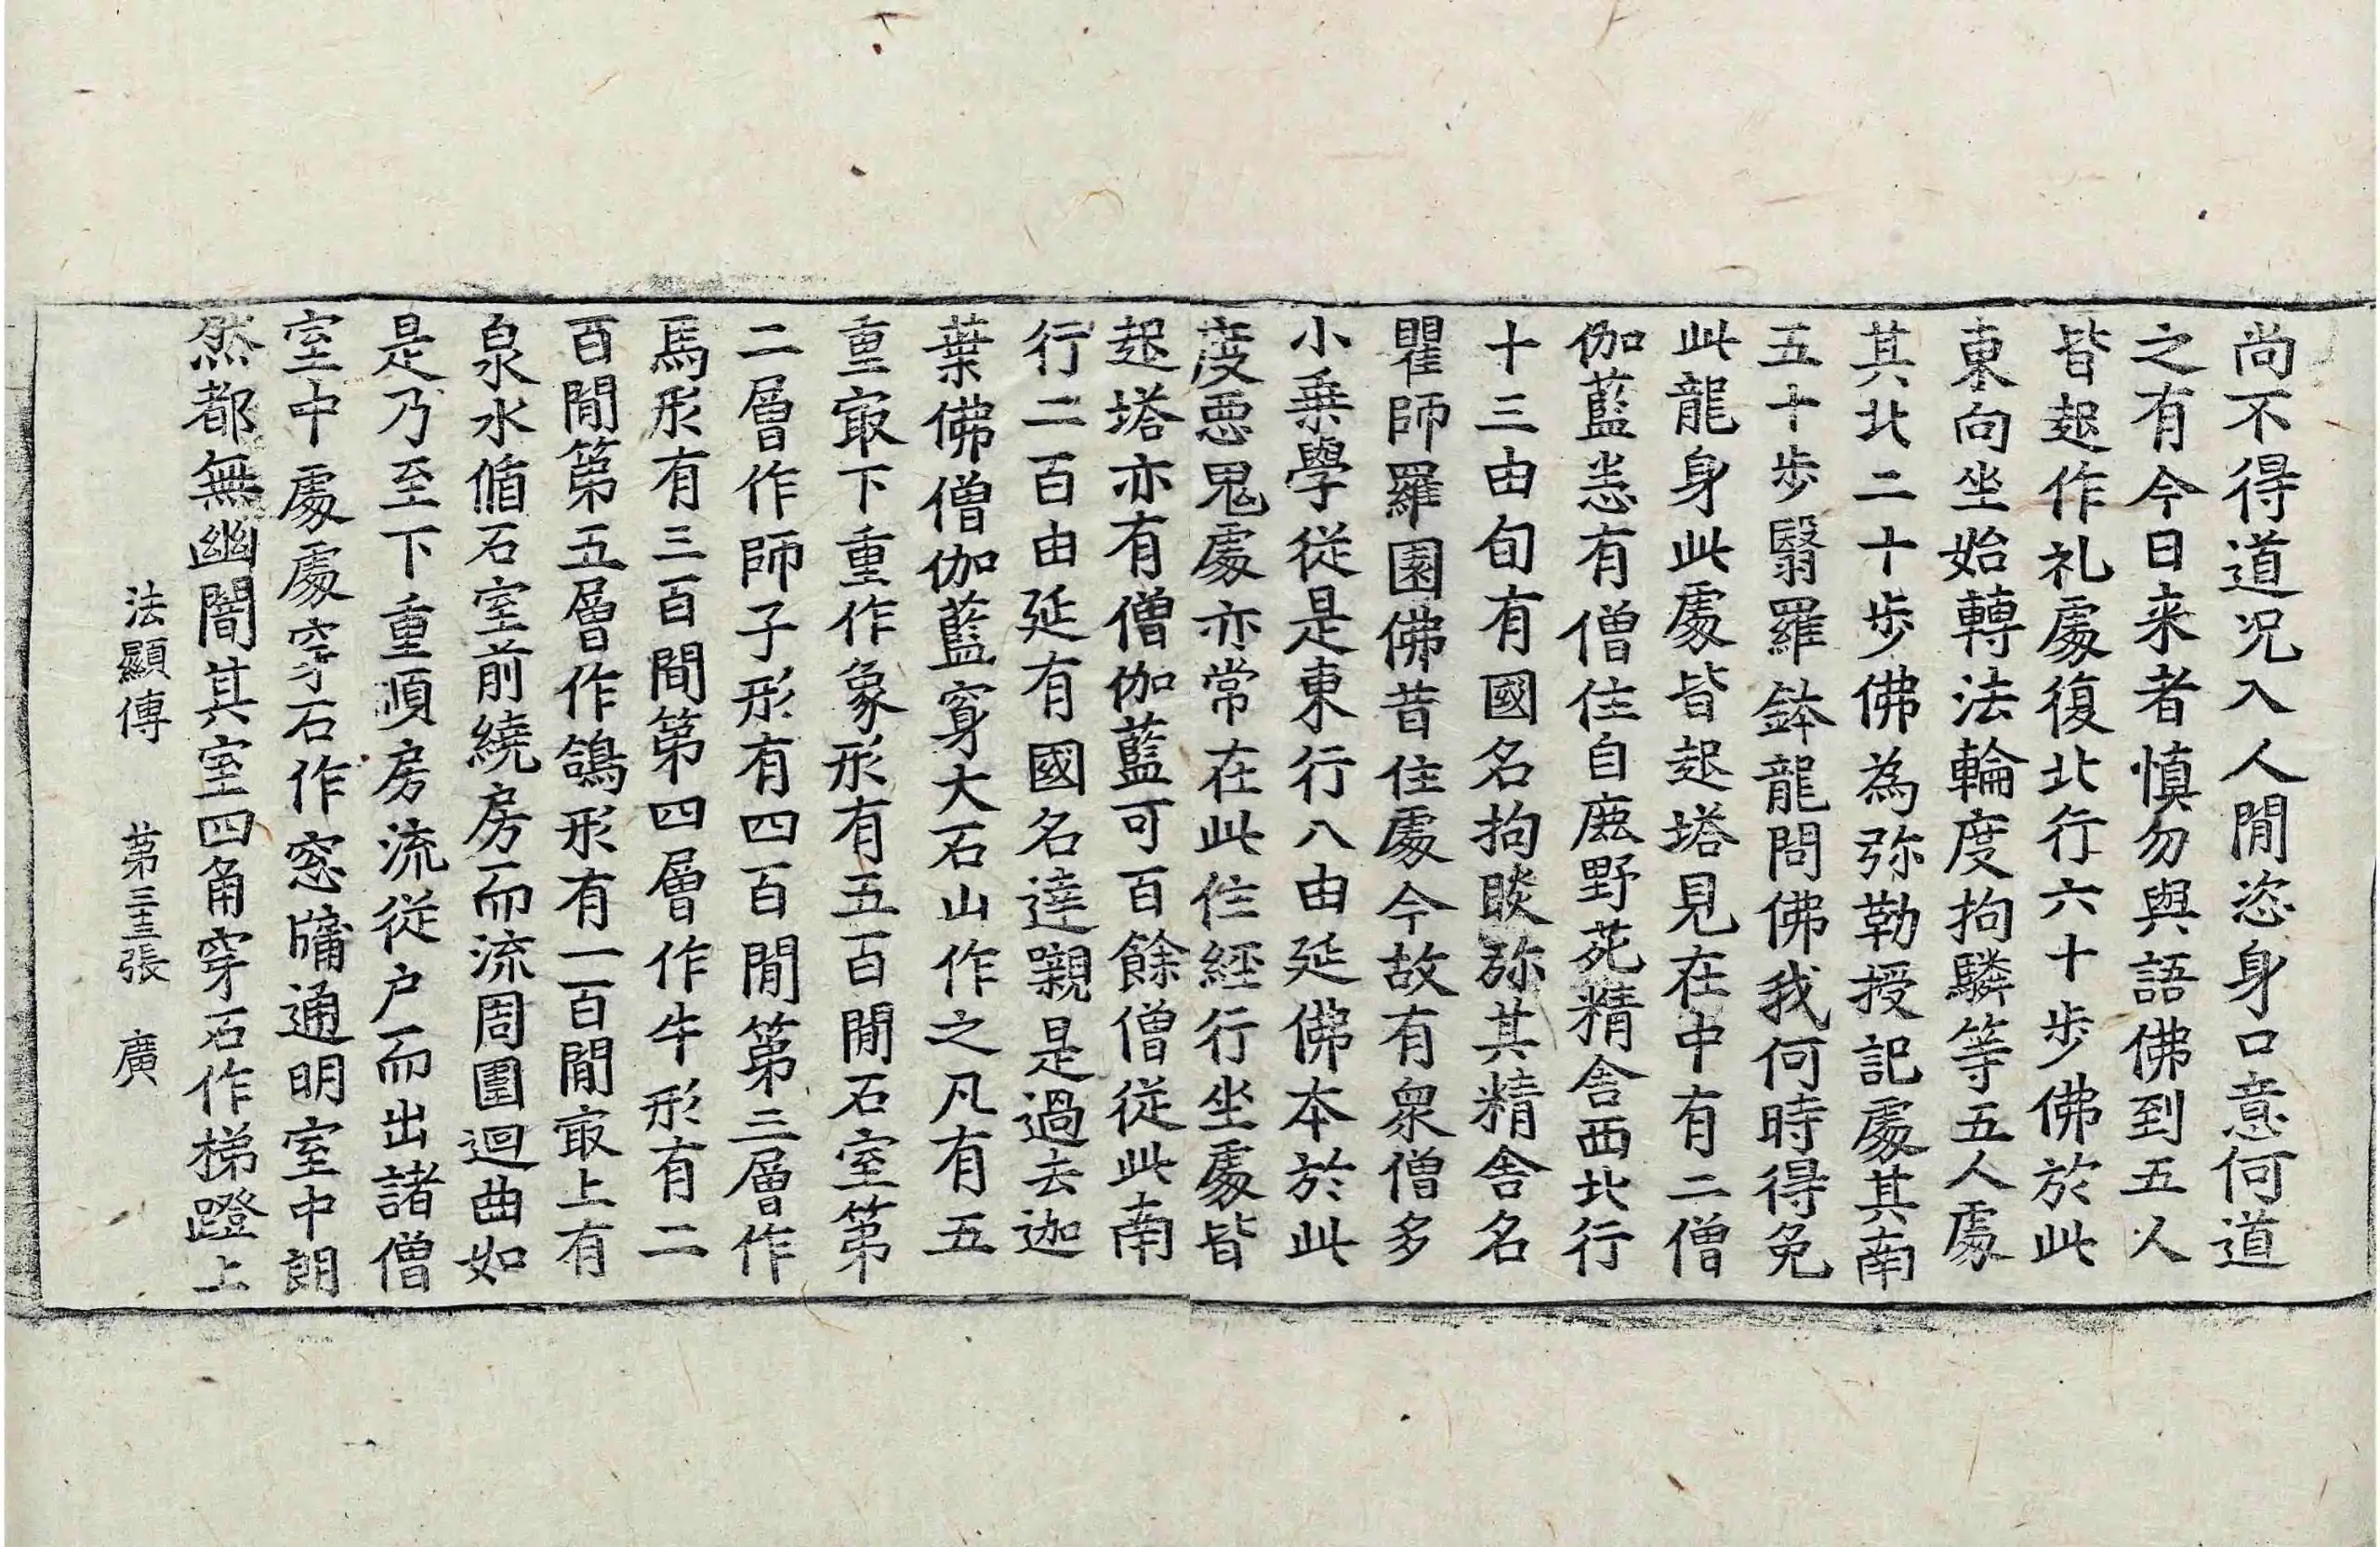 尚不得道况入人閒恣身口意何道
之有今日来者慎勿與語佛到五人
皆起作礼處復北行六十歩佛於此
東向坐始轉法輪度拘驎等五人處
其北二十歩佛為弥勒授記處其南
五十歩翳羅鉢龍問佛我何時得免
此龍身此處皆起塔見在中有二僧
伽藍悉有僧住自鹿野苑精舍西北行
十三由旬有國名拘睒弥其精舍名
瞿師羅園佛昔住處今故有衆僧多
小乗學從是東行八由延佛本於此
度惡鬼處亦常在此住經行坐處皆
起塔亦有僧伽藍可百餘僧從此南
行二百由延有國名達嚫是過去迦
葉佛僧伽藍穿大石山作之凡有五
重冣下重作象形有五百閒石室第
二層作師子形有四百閒第三層作
馬形有三百閒第四層作牛形有二
百閒第五層作鴿形有一百閒冣上有
泉水循石室前繞房而流周圍迴曲如
是乃至下重順房流從户而出諸僧
室中處處穿石作窓牖通明室中朗
然都無幽闇其室四角穿石作梯蹬上
法顯傳 第三十二張 廣